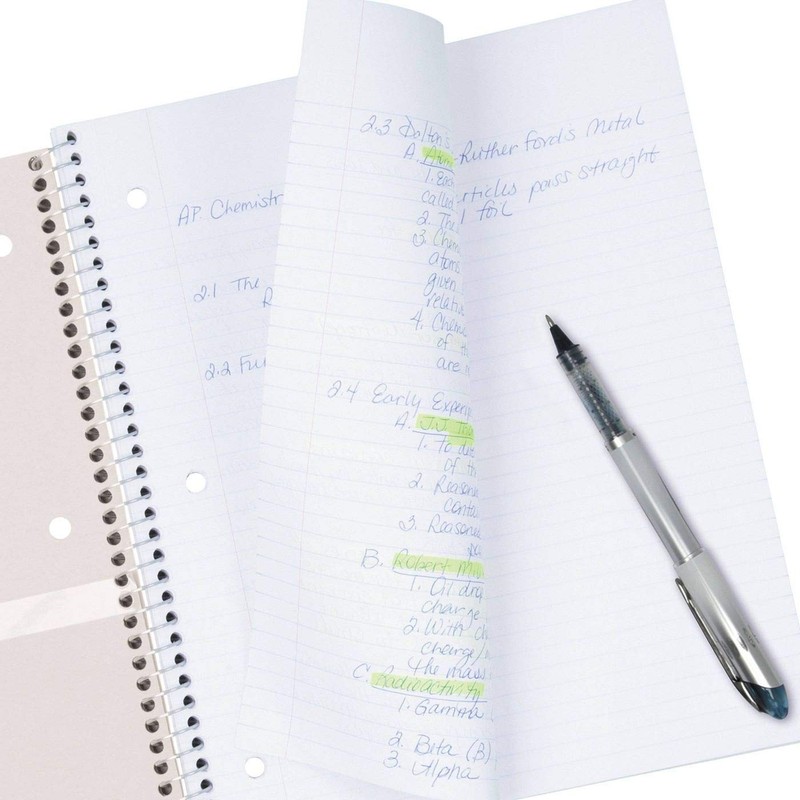 AP. Chemistr
2.1 The
R
2.2 Fu
2.3 Dalton's
A. Atom
1. Eac
called
2. The
3. Chem
atoms
given
relativ
4. Chemi
of th
are
2.4 Early Experi
A. J.J. Tho
1. To de
of th
2. Reasone
conta
3. Reasone
pa
B. Robert Mil
1. Oil dro
charge
2. With ch
charge/
the mass
C. Radioactivity
1. Gamma
2. Bita (B)
3. Alpha
Rutherford's Metal
rticles pass straight
l foil